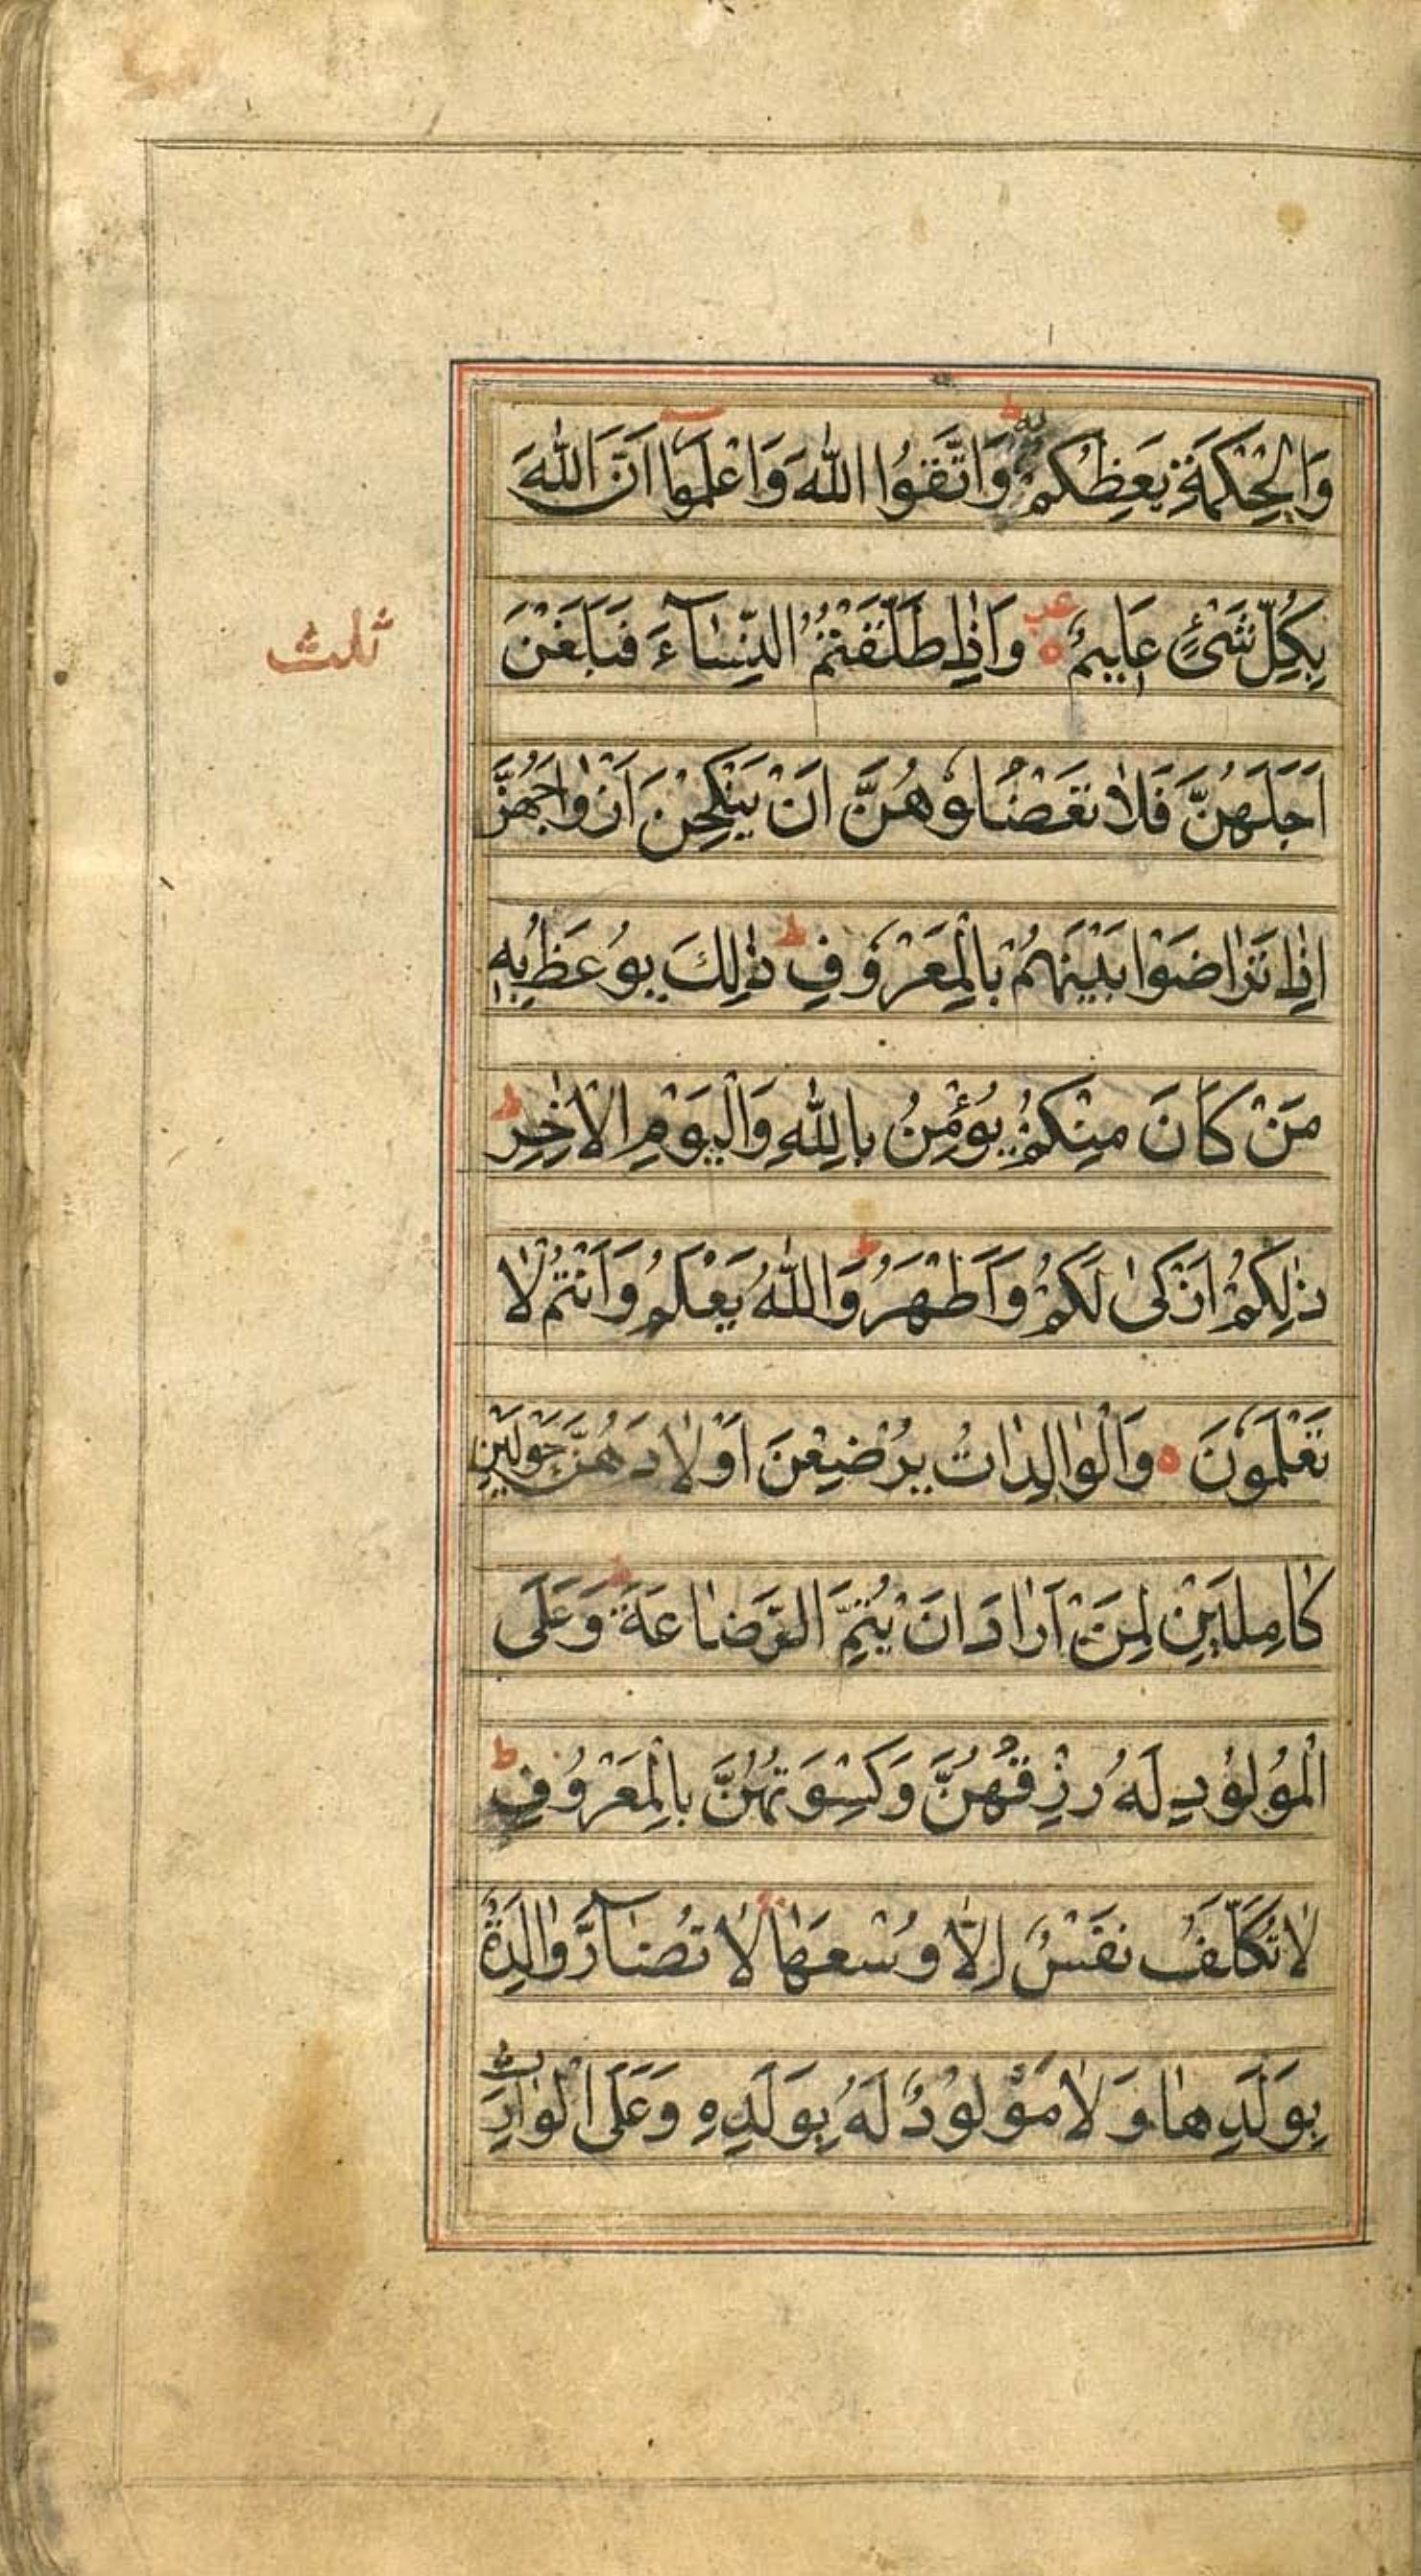 وَالْحِكْمَةِ يَعِظُكُمْ بِهِ ط وَاتَّقُوا اللّٰهَ وَاعْلَمُوا اَنَّ اللّٰهَ
بِكُلِّ شَیْءٍ عَلِيمٌ ه وَاِذٰا طَلَّقْتُمُ النِّسٰآءَ فَبَلَغْنَ
ثلث
اَجَلَهُنَّ فَلاٰ تَعْضُلُوهُنَّ اَنْ يَنْكِحْنَ اَزْوٰاجَهُنَّ
اِذٰا تَرٰاضَوْا بَيْنَهُمْ بِالْمَعْرُوفِ ط ذٰلِكَ يُوعَظُ بِهِ
مَنْ كٰانَ مِنْكُمْ يُؤْمِنُ بِاللّٰهِ وَالْيَوْمِ الْاٰخِرِ ط
ذٰلِكُمْ اَزْكىٰ لَكُمْ وَاَطْهَرُ ط وَاللّٰهُ يَعْلَمُ وَاَنْتُمْ لاٰ
تَعْلَمُونَ ه وَالْوٰالِدٰاتُ يُرْضِعْنَ اَوْلاٰدَهُنَّ حَوْلَيْنِ
كٰامِلَيْنِ لِمَنْ اَرٰادَ اَنْ يُتِمَّ الرَّضٰاعَةَ ط وَعَلَى
الْمَوْلُودِ لَهُ رِزْقُهُنَّ وَكِسْوَتُهُنَّ بِالْمَعْرُوفِ ط
لاٰ تُكَلَّفُ نَفْسٌ اِلّٰا وُسْعَهٰا لاٰ تُضٰآرَّ وٰالِدَةٌ
بِوَلَدِهٰا وَلاٰ مَوْلُودٌ لَهُ بِوَلَدِهِ وَعَلَى الْوٰارِثِ